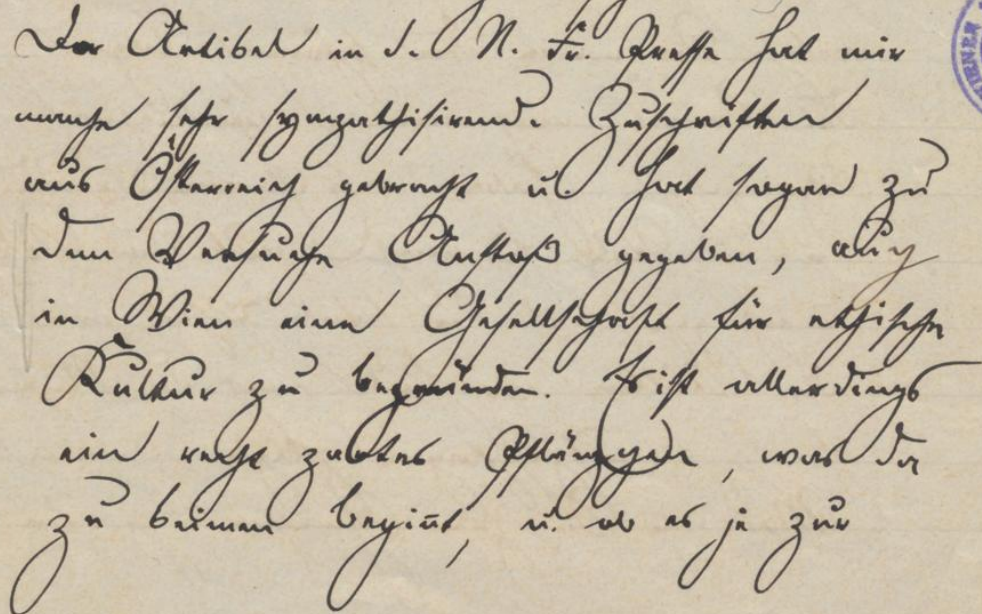 Der Artikel in d. N. Fr. Presse hat mir
manche sehr sympathisirend. Zuschriften
aus Österreich gebracht u. hat sogar zu
dem Versuche Anstoß gegeben, auch
in Wien eine Gesellschaft für ethische
Kultur zu begründen. Es ist allerdings
ein recht zartes Pflänzchen, was da
zu keimen begin̄t, u. ob es je zur